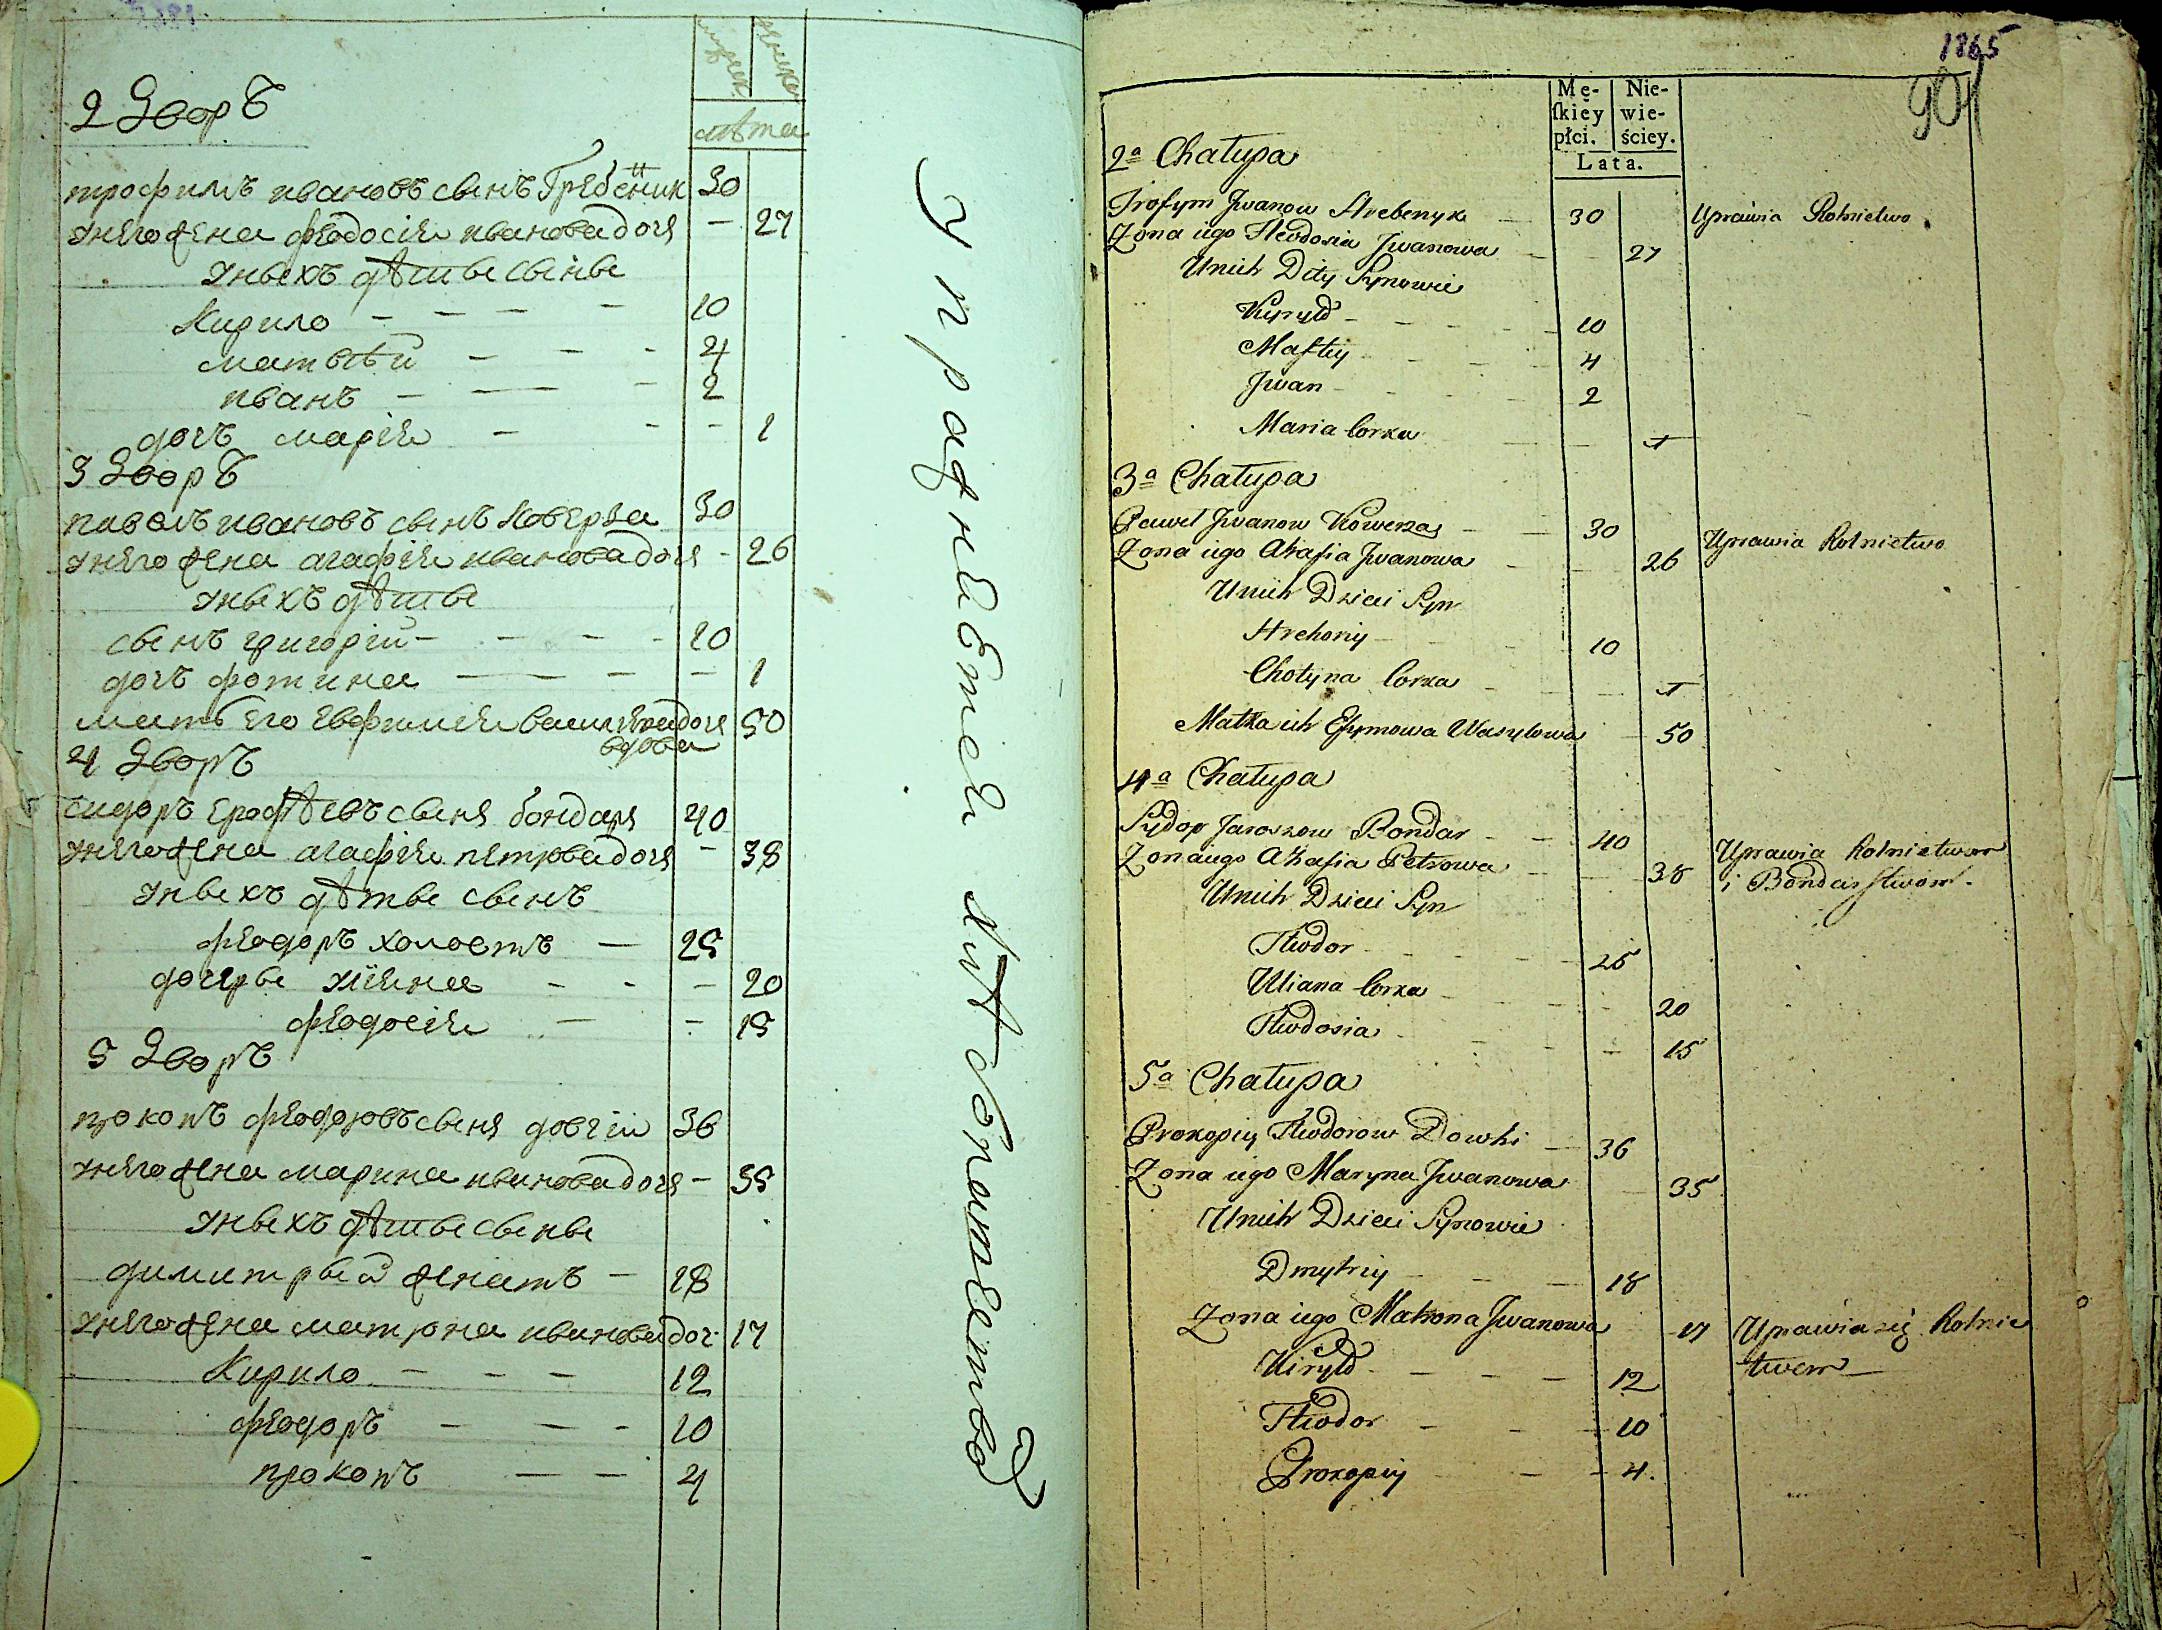 мужск женска
лѣта
2 Дворъ
трофимъ ивановъ сынъ Гребенник 30
унего жена феодосiя иванова дочя – 27
уныхъ дѣты сыны
Кирило – – – – 10
матвѣй – – – 4
иванъ – – – 2
дочъ марiя – – – 1
3 Дворъ
павелъ ивановъ сынъ Коверза 30
унего жена агафiя иванова дочя – 26
уныхъ дѣты
сынъ григорiй – – – – 10
дочъ фотина – – – – – 1
мать его евфимiя василева дочя 50
вдова
4 Дворъ
сидоръ ерофѣевъ сыня бондаря 40
унего жена агафiя петрова дочя – 38
уныхъ дѣты сынъ
феодоръ холостъ – 25
дочеры улiяна – – – 20
феодосiя – – 15
5 Дворъ
прокопъ феодоровъ сыня довгiй 36
унего жена марина иванова дочя – 35
уныхъ дѣты сыны
димитрый женатъ – 18
унего жена матрона иванова доч. 17
Кирило – – – 12
феодоръ – – – 10
прокопъ – – 4
упражняется хлѣбопашествомъ
1865
901
Mę-
ſkiéy
płci.
Nie-
wie-
ściey.
Lata.
2a Chałupa
Trofym Jwanow Hrebenyk – 30 Uprawia Rolnictwo
Zona iego Fteodosia Jwanowa – – 27
Unich Dity Synowie
Kyryło – – – – 10
Maftiy – – – 4
Jwan – – – 2
Maria Corka – – 1
3a Chałupa
Paweł Jwanow Kowerza – 30 Uprawia Rolnictwo
Zona iego Ahafia Jwanowa – – 26
Unich Dzieci Syn
Hrehoriy – – – 10
Chotyna Corka – – 1
Matka ich Efymowa Wasylowa – 50
4a Chałupa
Sydor Jaroszow Bondar – – 40 Uprawia Rolnictwom
Zona iego Ahafia Petrowa – – 38 i Bondarstwom.
Unich Dzieci Syn
Fteodor – – – – 25
Uliana Corka – – – 20
Fteodosia – – – – 15
5a Chałupa
Prokopiy Fteodorow Dowhi – 36
Zona iego Maryna Jwanowa – 35
Unich Dzieci Synowie
Dmytriy – – – 18
Zona iego Matrona Jwanowa – 17 Uprawia się Rolnic
Kiryło – – – – 12 twem
Fteodor – – – – 10
Prokopiy – – – 4.